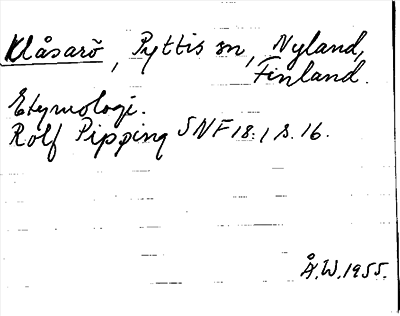 Klåsarö, Pyttis sn, Nyland,
Finland.
Etymologi.
Rolf Pipping SNF 18:1 s. 16.
Å.W. 1955.